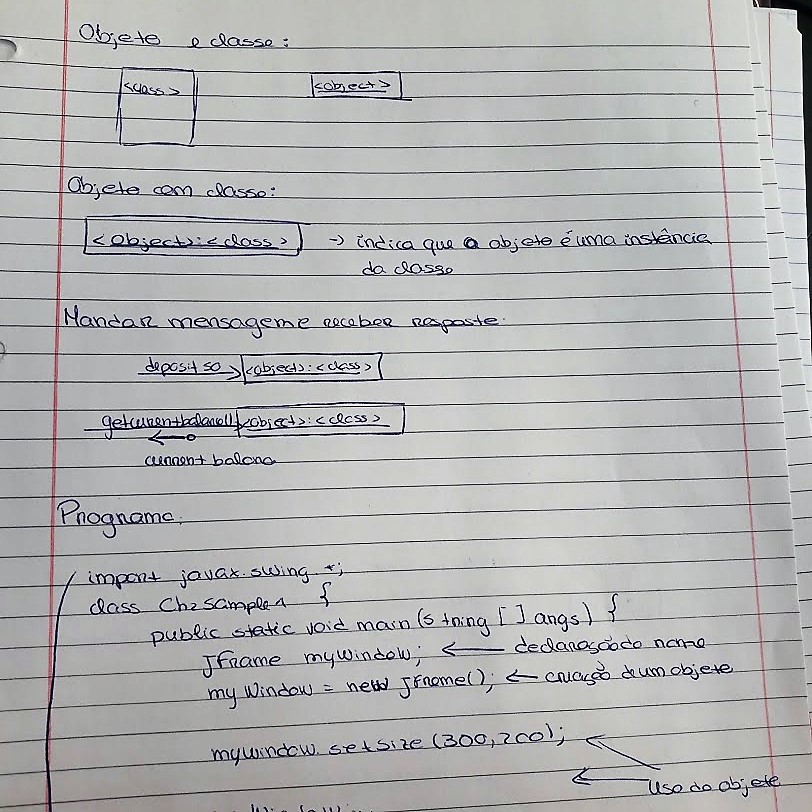 Objeto e classe:
<class> <object>
Objeto com classe:
<object>:<class> → indica que o objeto é uma instância
da classe
Mandar mensagem e receber resposta:
deposit 50 → <object>:<class>
getcurrentbalance() <object>:<class>
←
current balance
Programa:
import javax.swing.*;
class Ch2Sample1 {
public static void main(String [] args) {
JFrame myWindow; ← declaração do nome
myWindow = new JFrame(); ← criação de um objeto
myWindow.setSize (300,200);
← Uso do objeto